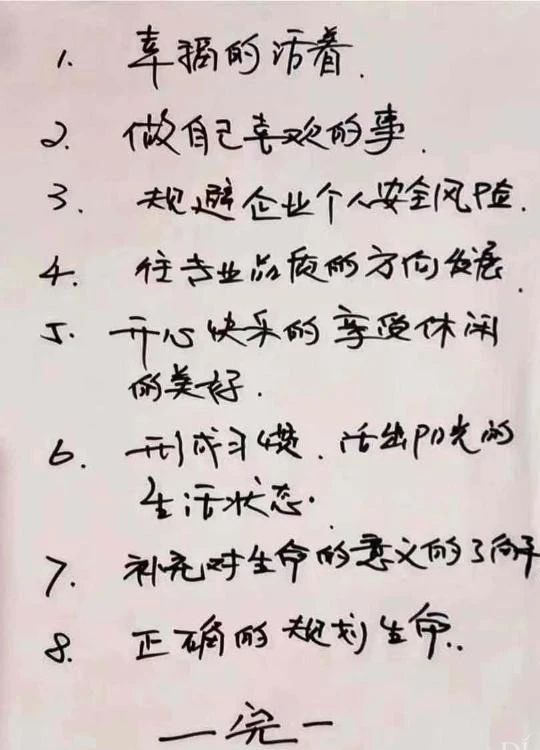 1. 幸福的活着.
2. 做自己喜欢的事.
3. 规避企业个人安全风险.
4. 往专业品质的方向发展.
5. 开心快乐的享受休闲
的美好.
6. 形成习惯.活出阳光的
生活状态.
7. 补充对生命的意义的了解
8. 正确的规划生命..
—完—